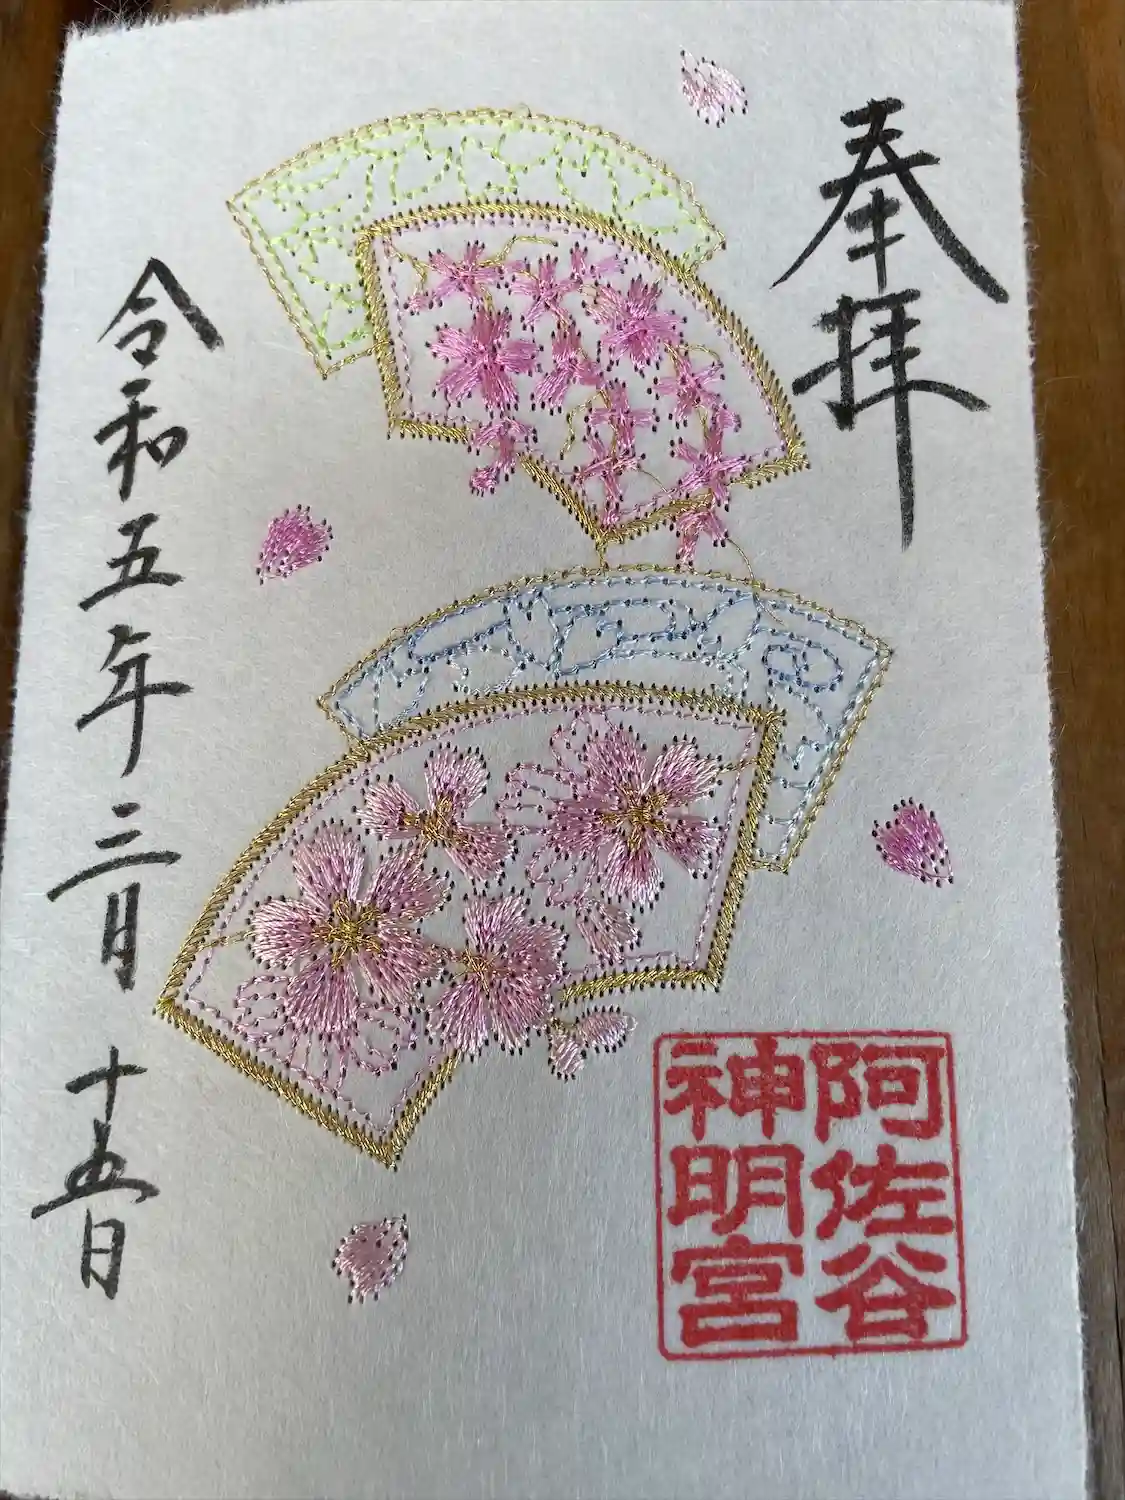 奉拝
阿佐谷
神明宮
令和五年三月十五日